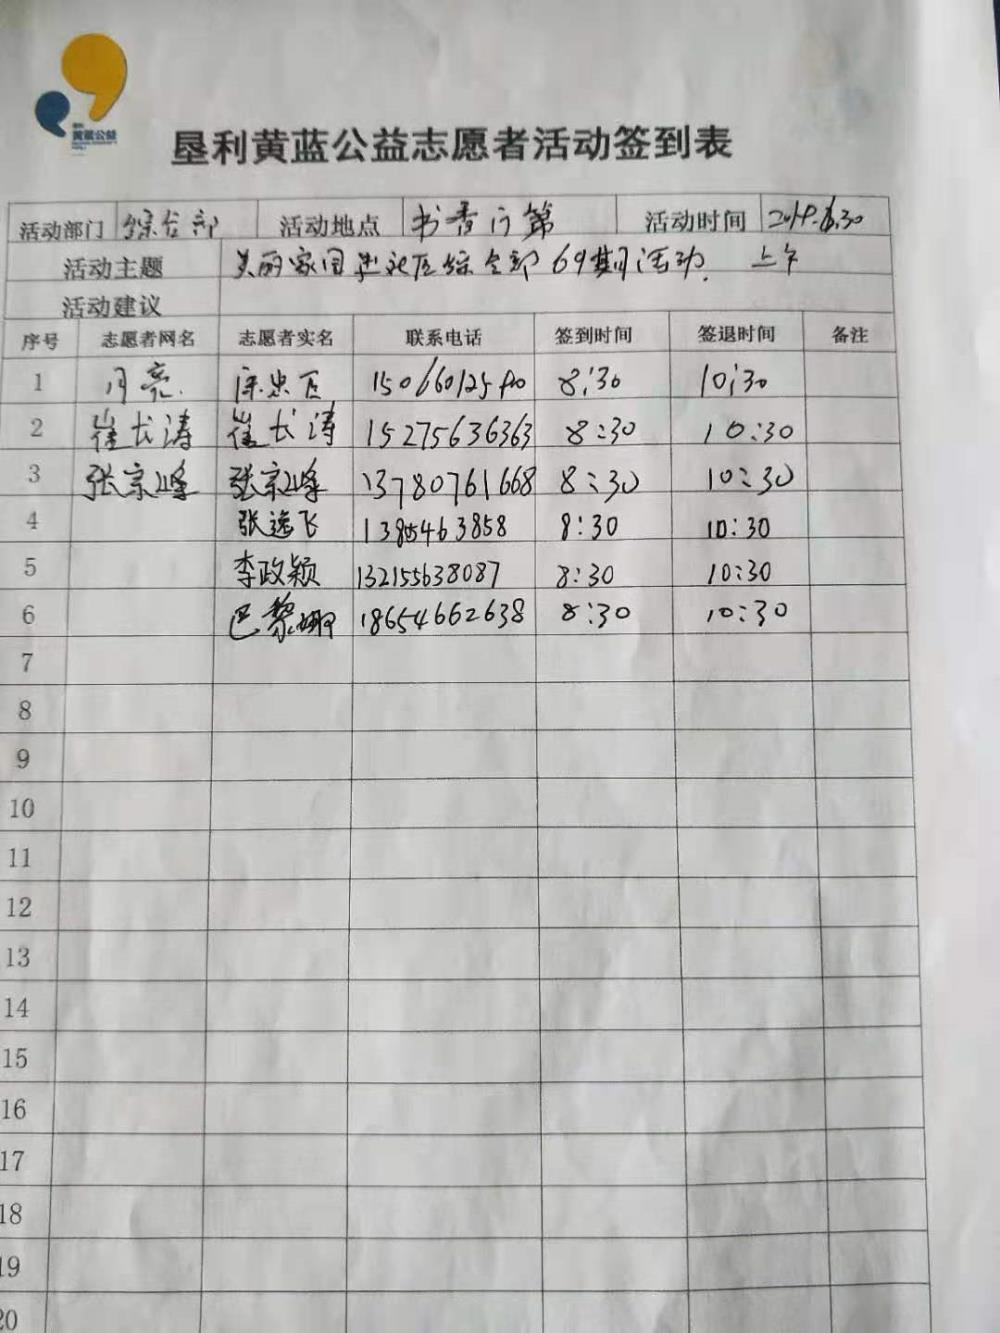 黄蓝公益
垦利黄蓝公益志愿者活动签到表
活动部门 综合部 活动地点 书香门第 活动时间 2019.6.30
活动主题 美丽家园 社区综合部69期活动 上午
活动建议
序号 志愿者网名 志愿者实名 联系电话 签到时间 签退时间 备注
1 月亮 8:30 10:30
2 崔长涛 崔长涛 15275636363 8:30 10:30
3 张宗峰 张宗峰 13780761668 8:30 10:30
4 张逸飞 8:30 10:30
5 李政颖 132155638087 8:30 10:30
6 巴黎娜 18654662638 8:30 10:30
7
8
9
10
11
12
13
14
15
16
17
18
19
20